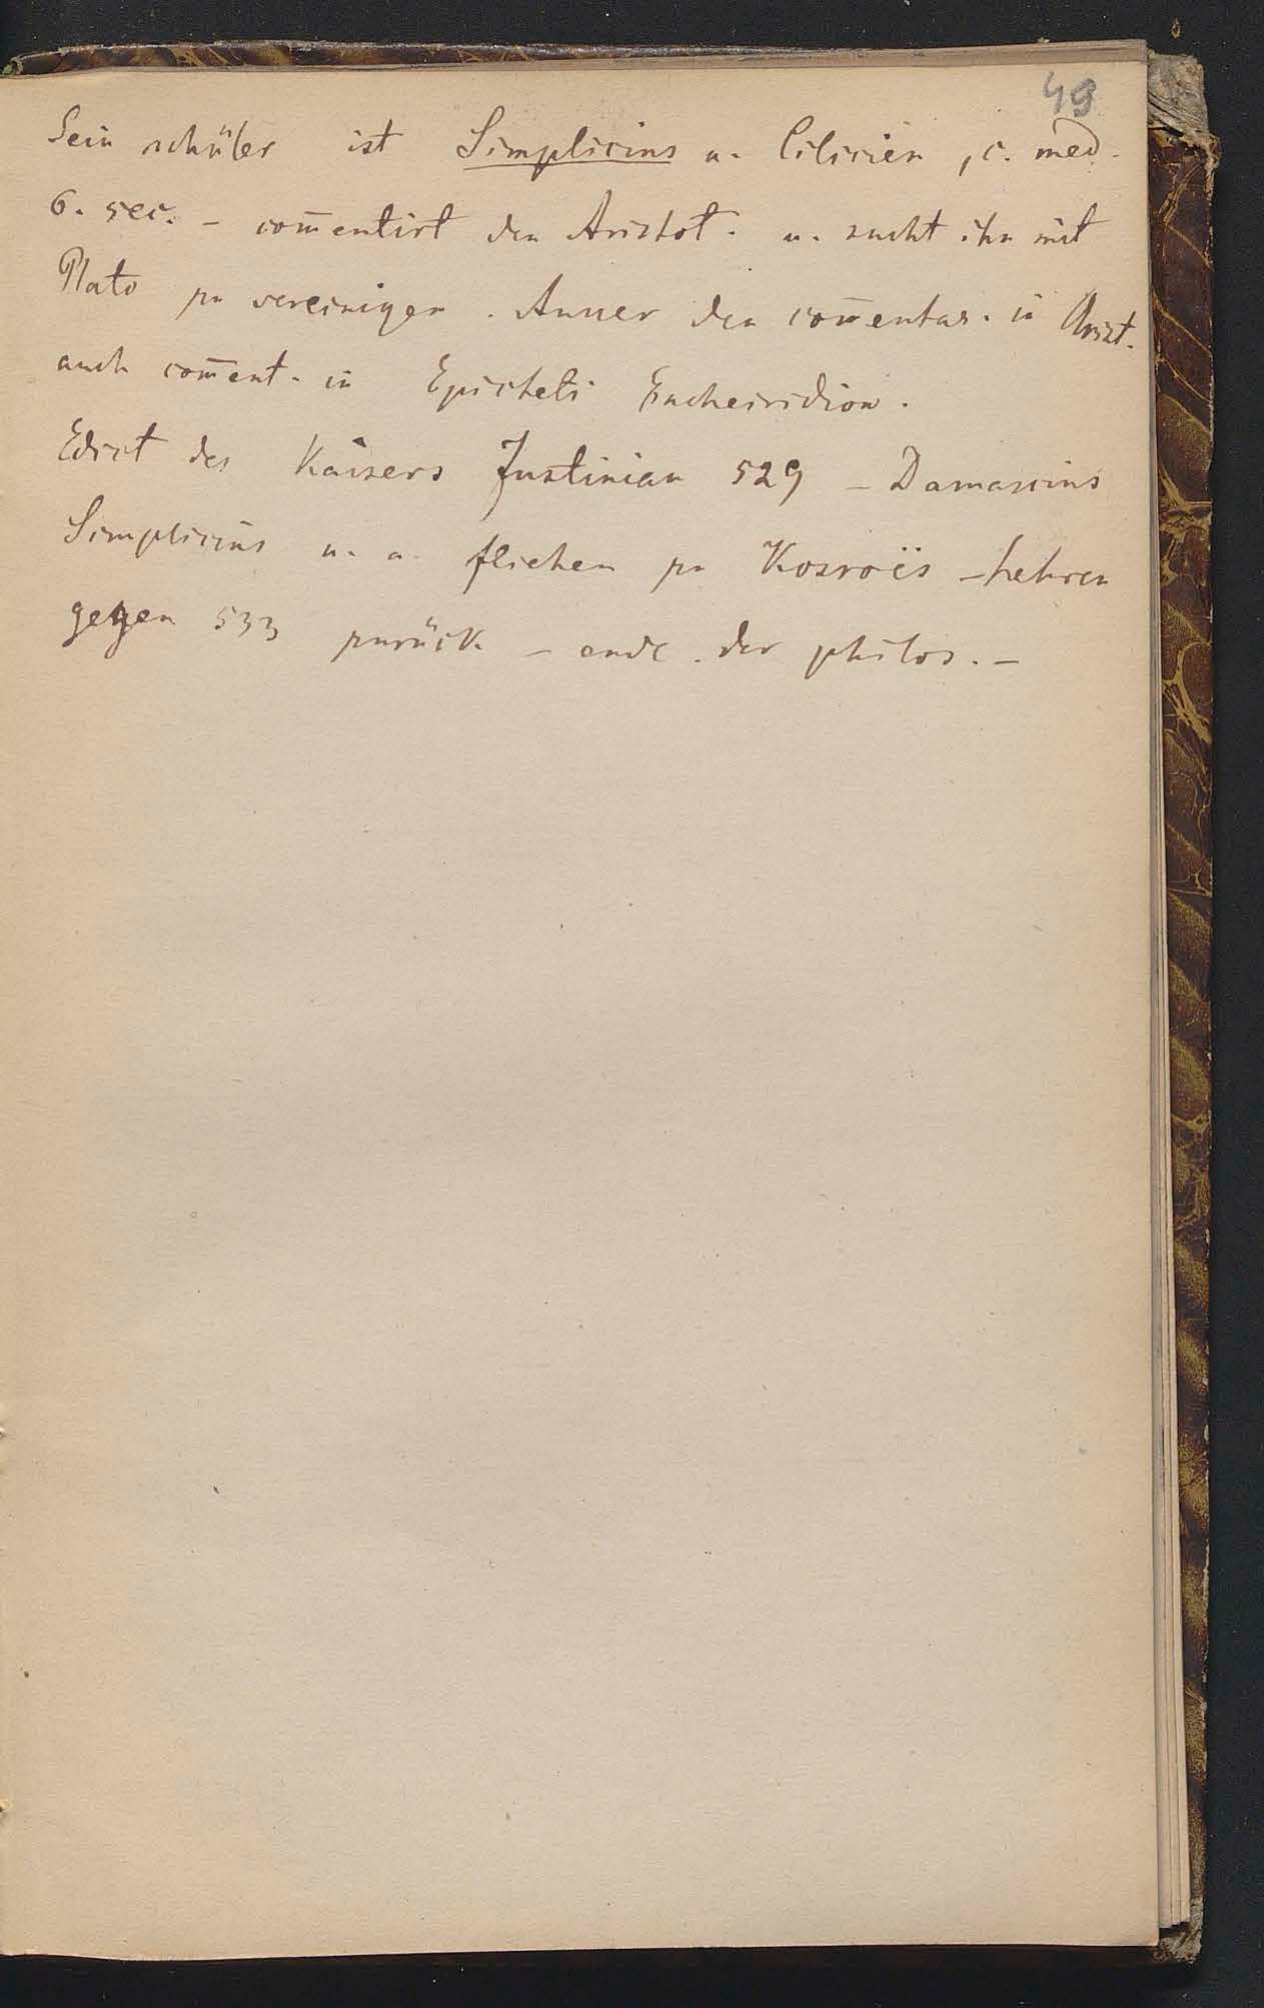 49
Sein schüler ist Simplicius a. Cilicien, c. med.
6. sec. – com̄entirt den Aristot. u. sucht ihn mit
Plato zu vereinigen. Ausser den com̄entar. in Arist.
auch com̄ent. in Epicteti Encheiridion.
Edict des Kaisers Justinian 529 – Damascius
Simplicius u. a. fliehen zu Kosroës – kehren
gegen 533 zurück – ende der philos. –